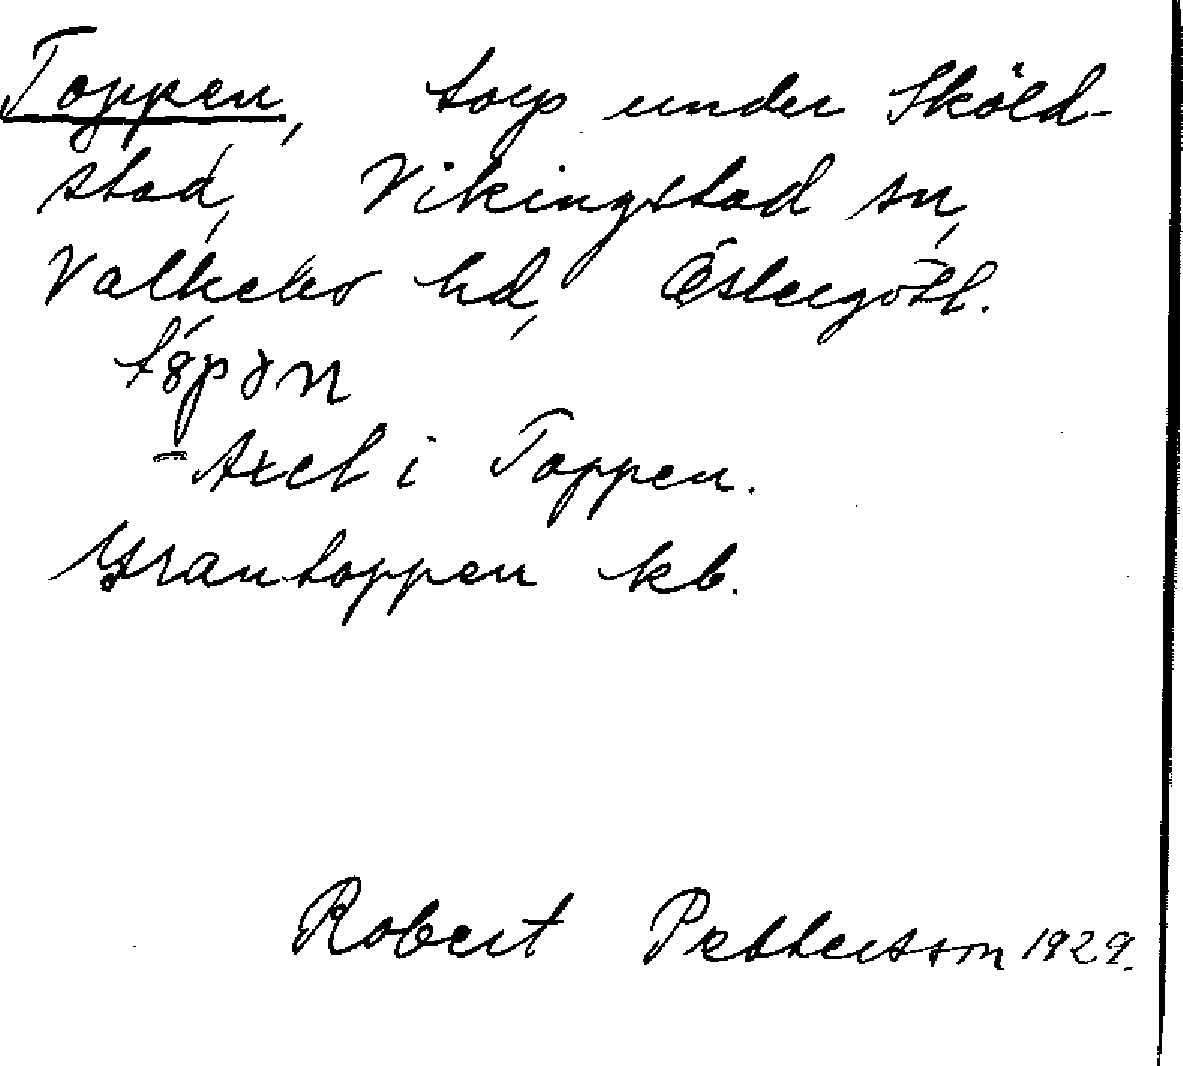 Toppen, torp under Sköld-
stad, Vikingstad sn,
Valkebo hd, Östergötl.
tópən
- Axel i Toppen.
Grantoppen kb.
Robert Pettersson 1929.